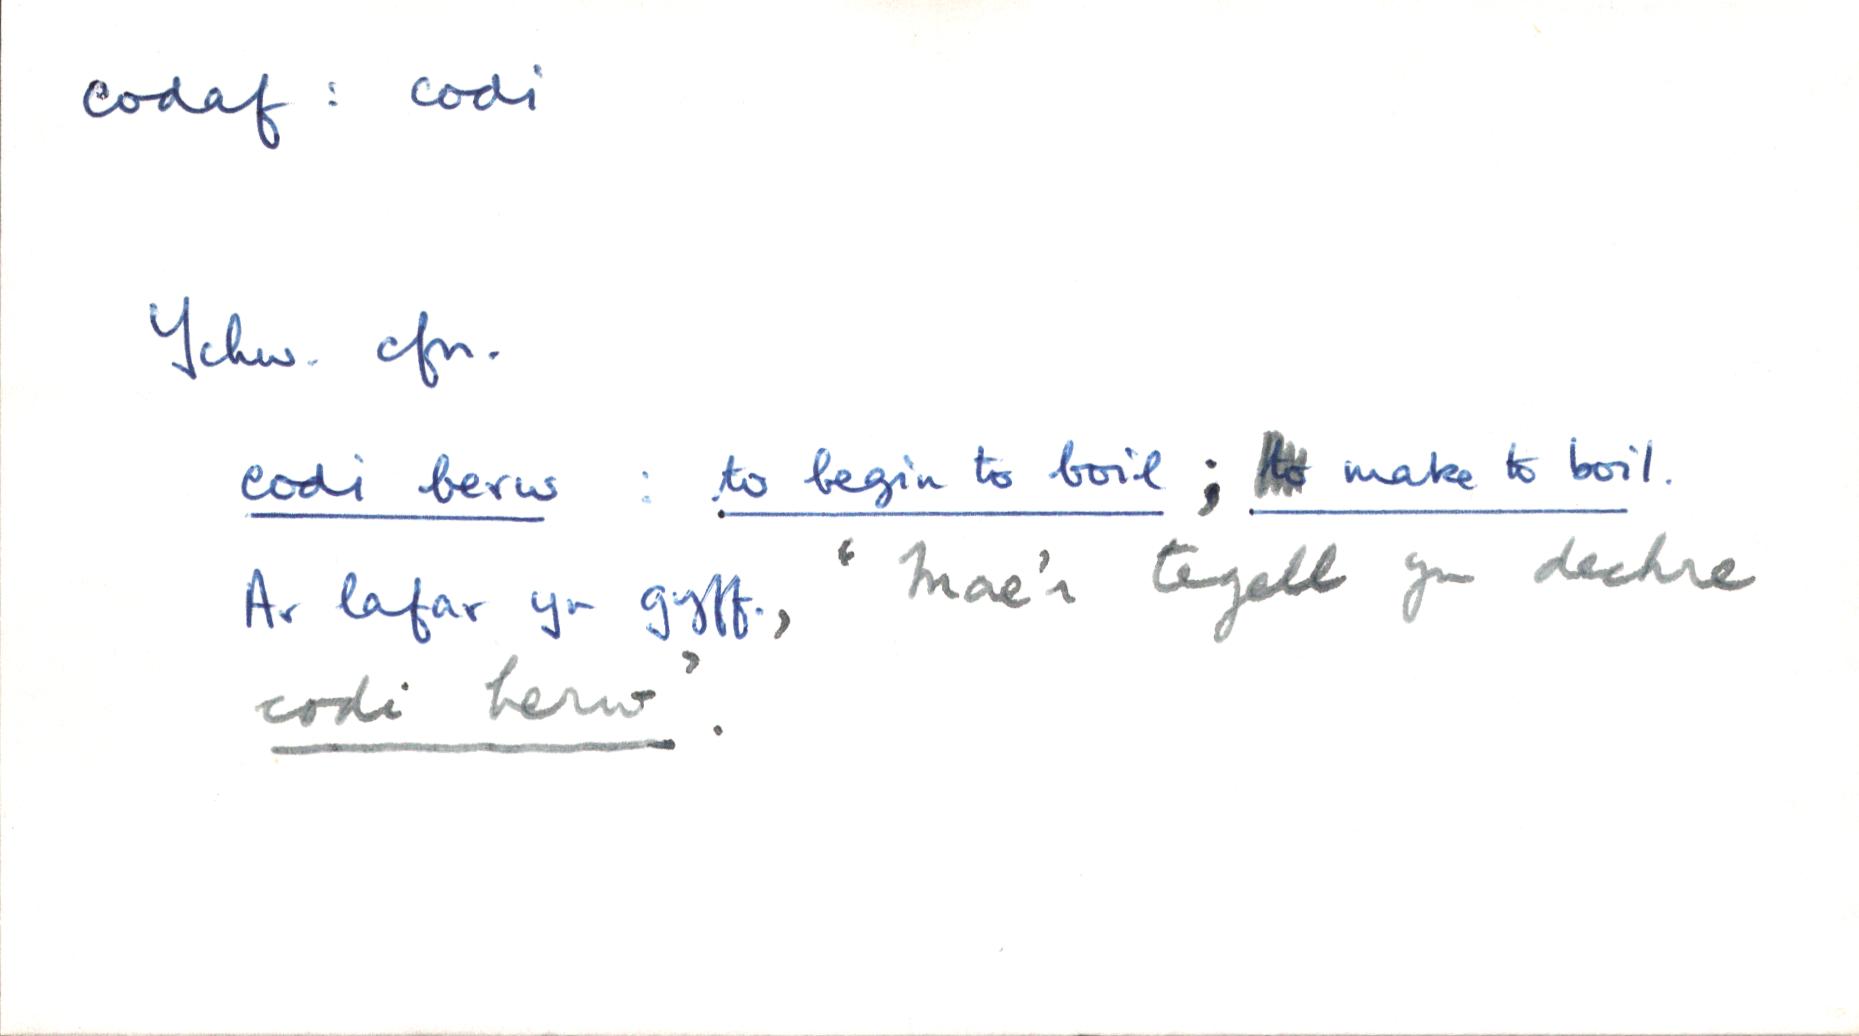 codaf : codi
Ychw. cfn.
codi berw : to begin to boil ; to make to boil.
Ar lafar yn gyff., 'Mae'r tegell yn dechre
codi berw'.